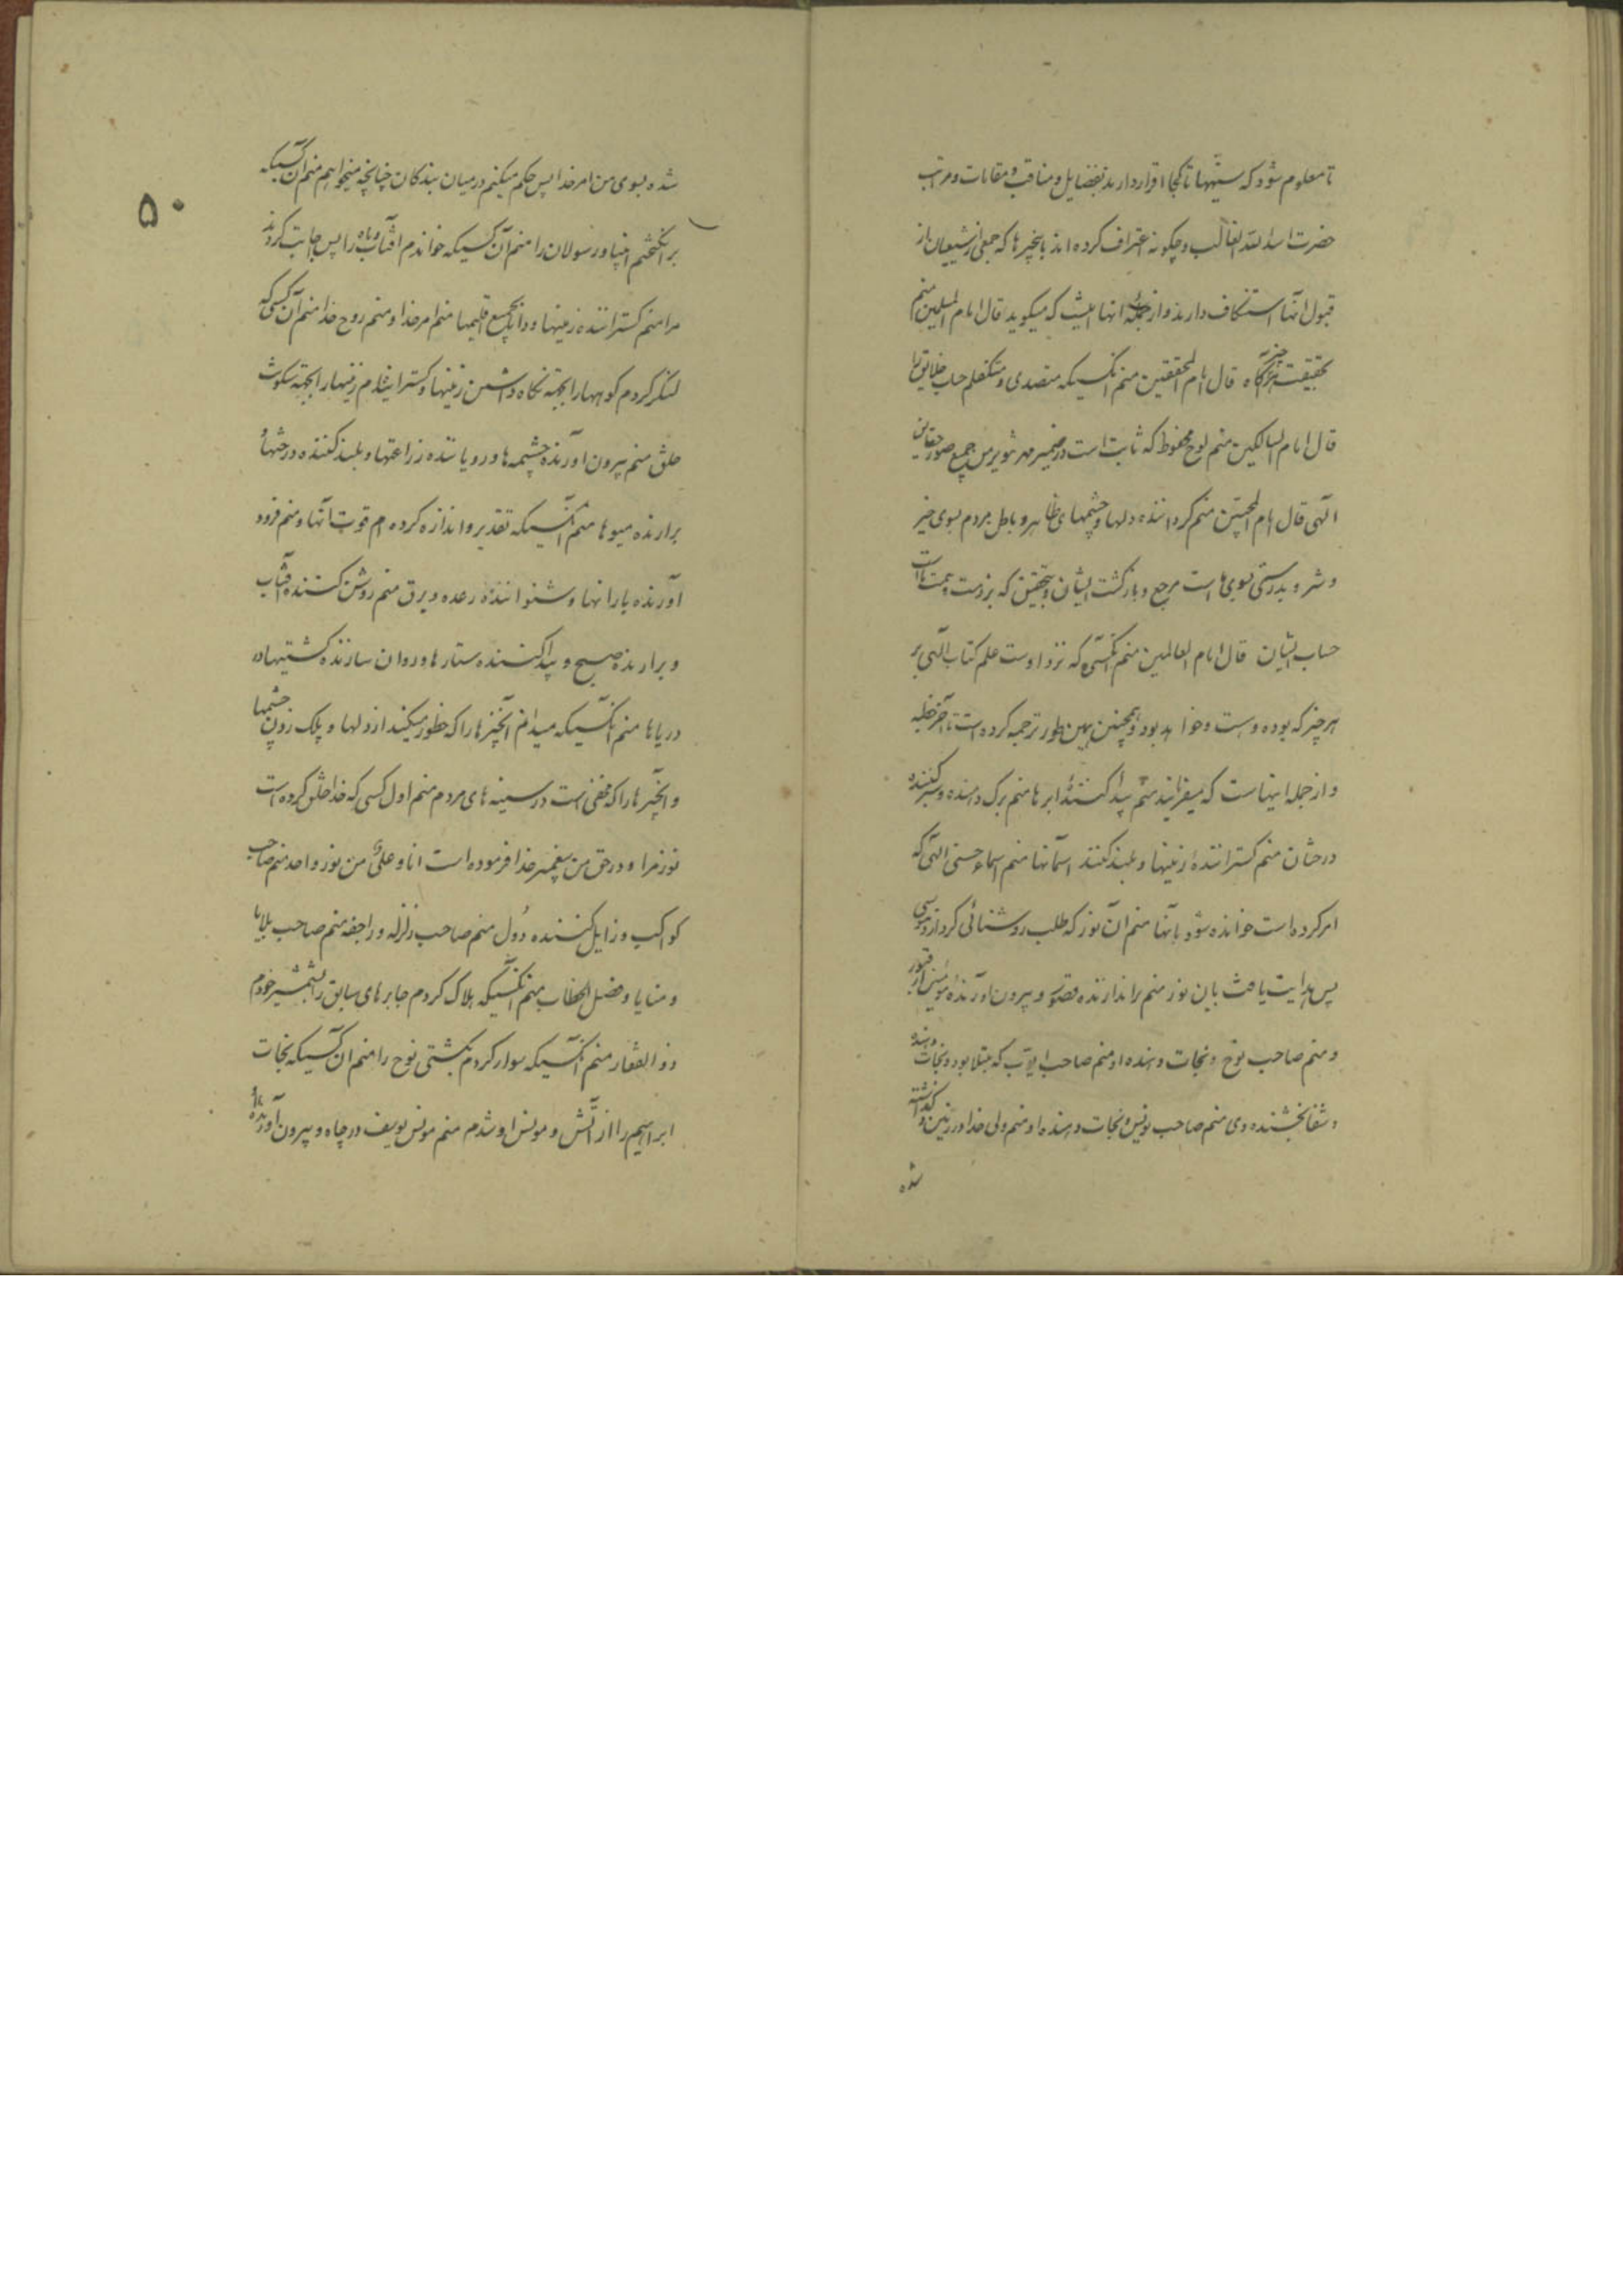 تا معلوم شود که سنیها تا کجا اقرار دارند بفضایل و مناقب و مقامات و مراتب
حضرت اسد الله الغالب و چکونه اعتراف کرده اند بانچیز ها که جمعی از شیعیان از
قبول آنها استنکاف دارند و از جمله انها اینست که میکوید قال امام المسلمین منم
قال امام المحققین منم آنکسیکه متصدی و متکفلم حساب خلایق را
قال امام السالکین منم لوح محفوظ که ثابت است در ضمیر جمیع صور حقایق
الهی قال امام المحبین منم کرداننده دلها و چشمهای ظاهر و باطن مردم بسوی خیر
و شر و بدرستی بسوی ماست مرجع و بازکشت ایشان و بتحقیق که بر ذمت همت ماست
حساب ایشان قال امام العالمین منم آنکسی که نزد اوست علم کتاب الهی بر
هر چیز که بوده و هست و خواهد بود و همچنین بهمین طور ترجمه کرده است تا آخر خطبه
و از جمله اینهاست که میفرمایند منم پیدا کنندۀ ابرها منم برک دهنده و سبز کننده
درختان منم کسترانندۀ زمینها و بلند کننده اسمانها منم اسماء حسنی الهی که
امر کرده است خوانده شود بانها منم آن نور که طلب روشنائی کرد از او موسی
پس هدایت یافت بان نور منم براندازنده قصور و بیرون آورندۀ مؤمنین از قبور
و منم صاحب نوح و نجات دهنده او منم صاحب ایوب که مبتلا بود و نجات دهنده
و شفا بخشنده وی منم صاحب یونس و نجات دهنده او منم ولی خدا در زمین و کذاشته
شده
۵۰
شده بسوی من امر خدا پس حکم میکنم در میان بندکان چنانچه میخواهم منم آن کسیکه
برانکیختم انبیا و رسولان را منم آن کسیکه خواندم افتاب و ماه را پس اجابت کردند
مرا منم کستراننده زمینها و دانا بجمیع اقلیمها منم امر خدا و منم روح خدا منم آن کسی که
لنکر کردم کوهها را بجهته نکاه داشتن زمینها و کسترانیدم زمینها را بجهته سکونت
خلق منم بیرون اورنده چشمه ها و رویاننده زراعتها و بلند کننده درختها و
برارنده میوها منم آنکسیکه تقدیر و اندازه کرده ام قوت انها و منم فرود
آورنده بارانها و شنوانندۀ رعد و برق منم روشن کننده افتاب
و برارنده صبح و پیدا کننده ستارها و روان سازنده کشتیها در
دریاها منم آنکسیکه میدانم آنچیزها را که خطور میکند از دلها و پلک زدن چشمها
و آنچیزها را که مخفی است در سینه های مردم منم اول کسی که خدا خلق کرده است
نور مرا و در حق من پیغمبر خدا فرموده است انا و علیٌ من نور واحد منم صاحب
کواکب و زایل کننده دُوَل منم صاحب زلزله و راجفه منم صاحب بلایا
و منایا و فصل الخطاب منم آنکسیکه هلاک کردم جابرهای سابق را بشمشیر خودم
ذو الفقار منم آنکسیکه سوار کردم بکشتی نوح را منم ان کسیکه نجات
ابراهیم را از آتش و مونس او شدم منم مونس یوسف در چاه و بیرون آورنده